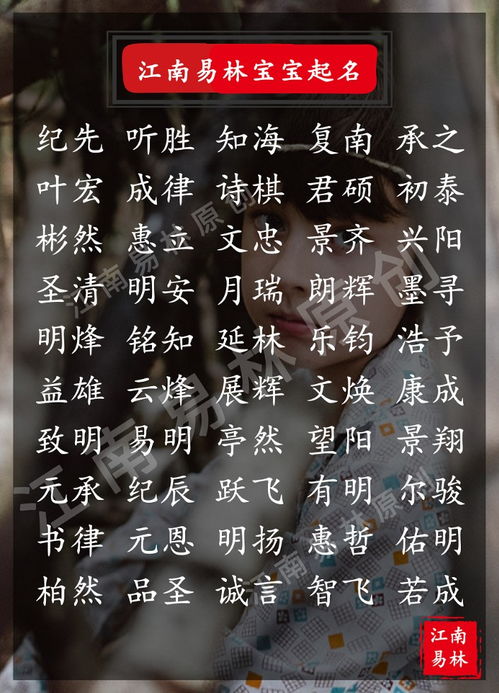 江南易林宝宝起名
纪先 听胜 知海 复南 承之
叶宏 成律 诗棋 君硕 初泰
彬然 惠立 文忠 景齐 兴阳
圣清 明安 月瑞 朗辉 墨寻
明烽 铭知 延林 乐钧 浩予
益雄 云烽 展辉 文焕 康成
致明 易明 亭然 望阳 景翔
元承 纪辰 跃飞 有明 尔骏
书律 元恩 明扬 惠哲 佑明
柏然 品圣 诚言 智飞 若成
江南易林原创
江南易林原创
江南易林原创
江南
易林